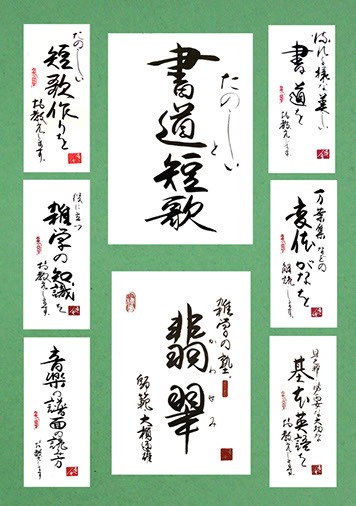 たのしい
書道と
短歌
流れる様な美しい
書道を
お教えします。
万葉集などの
変体がなを
解読します。
基本英語を
お教えします。
たのしい
短歌作りを
お教えします。
役に立つ
雑学の知識を
お教えします。
音楽の譜面の読み方
お教えします
雑学の塾
翡翠
かわせみ
師範